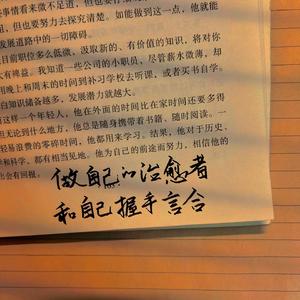 事情看来微不足道,但也要
但也要努力去探究清楚。如能做到这一点,他就能
发展道路中的一切障碍。
目前职位多么低微,汲取新的、有价值的知识,将对你
大有裨益。我知道一些公司的小职员,尽管薪水微薄,却
用晚上和周末的时间到补习学校去听课,或者买书自学。
自知识储备越多,发展潜力就越大。
这样一个年轻人,他在外面的时间比在家时间还要多得
但无论到什么地方,他总是随身携带着书籍,随时阅读。一
轻易浪费的零碎时间,他都用来学习。结果,他对于历史、
学和科学,都有相当见地。他为自己的前途而努力,相信他的
会有回报。
做自己的治愈者
和自己握手言合